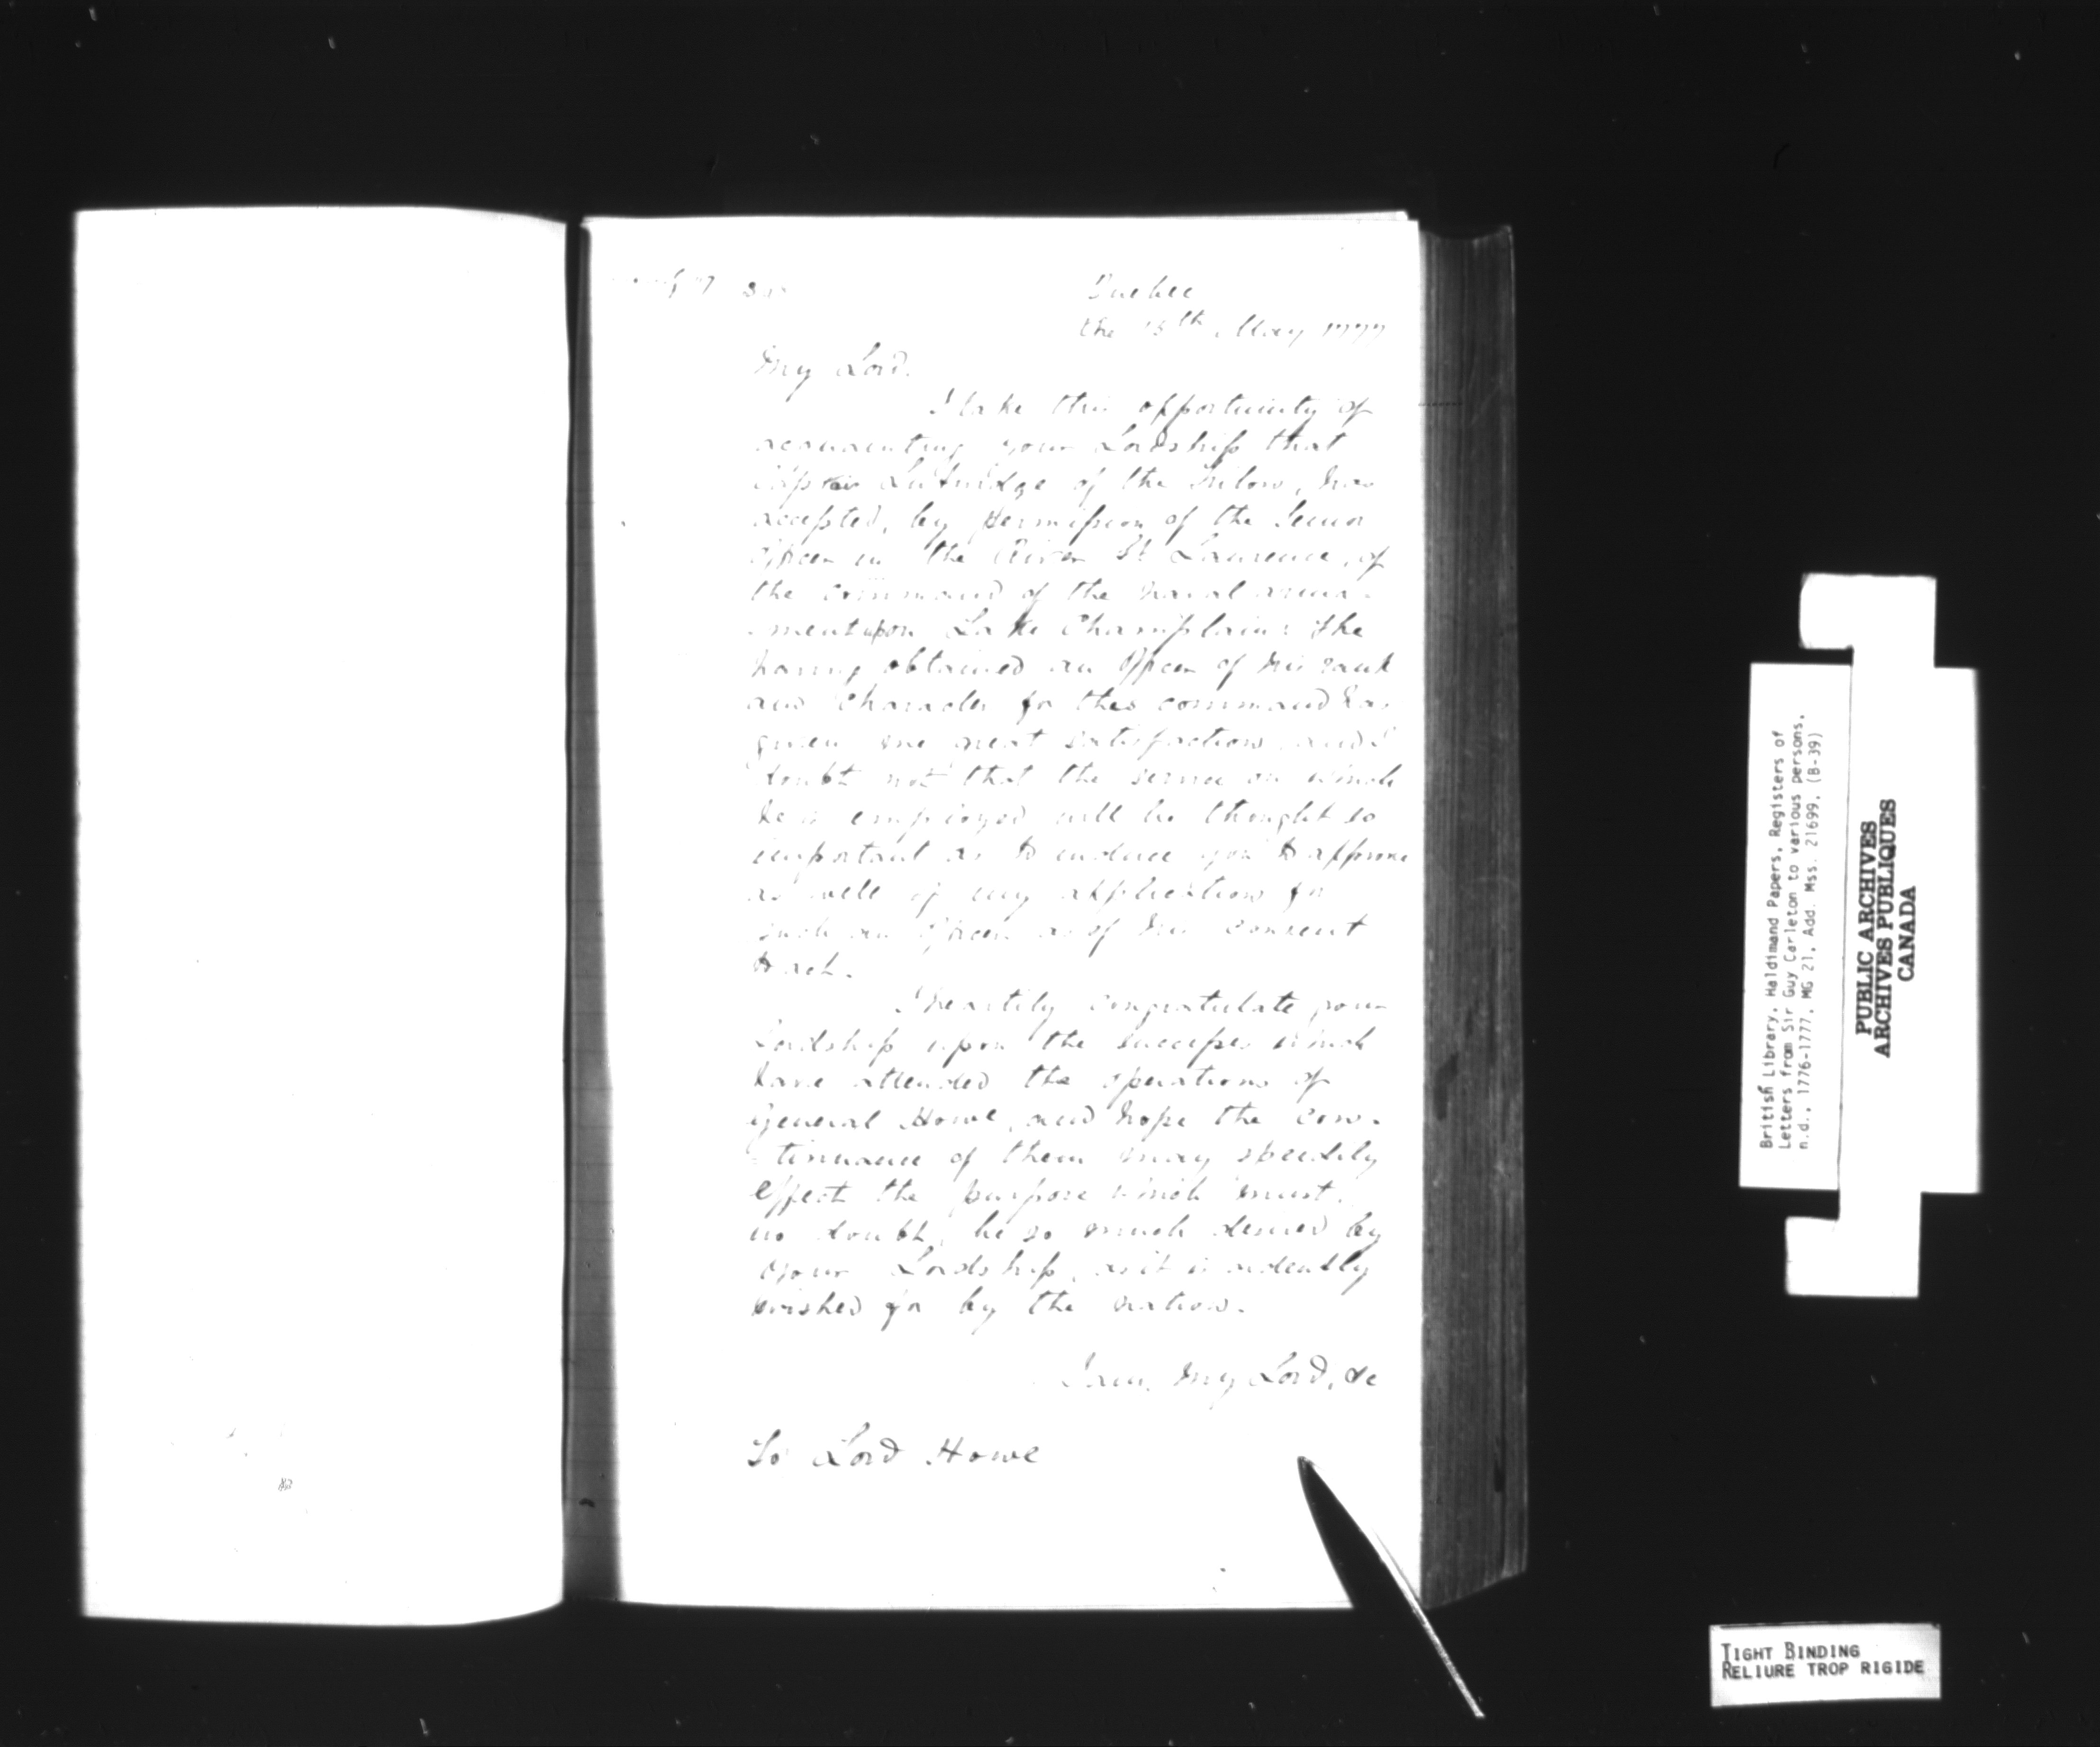 Quebec
the 15th May 1777
My Lord.
I take this opportunity of
acquainting your Lordship that
Lutwidge of the Triton, has
accepted, by permission of the Senior
Officer in the River St Laurence, of
the command of the naval arma-
-ment upon Lake Champlain: The
having obtained an Officer of his rank
and Character for this command has
given me great satisfaction and I
doubt not that the service on which
he is employed will be thought so
important as to induce you to approve
as well of my application for
such an Officer as of his consent
to act.
I heartily congratulate your
Lordship upon the successes which
have attended the operations of
General Howe, and hope the con-
-tinuance of them may speedily
effect the purpose which must,
no doubt, be so much desired by
your Lordship, as it is ardently
wished for by the nation.
I am, My Lord, &c
To Lord Howe
British Library, Haldimand Papers, Registers of
Letters from Sir Guy Carleton to various persons,
n.d., 1776-1777, MG 21, Add. Mss. 21699, (B-39)
PUBLIC ARCHIVES
ARCHIVES PUBLIQUES
CANADA
TIGHT BINDING
RELIURE TROP RIGIDE